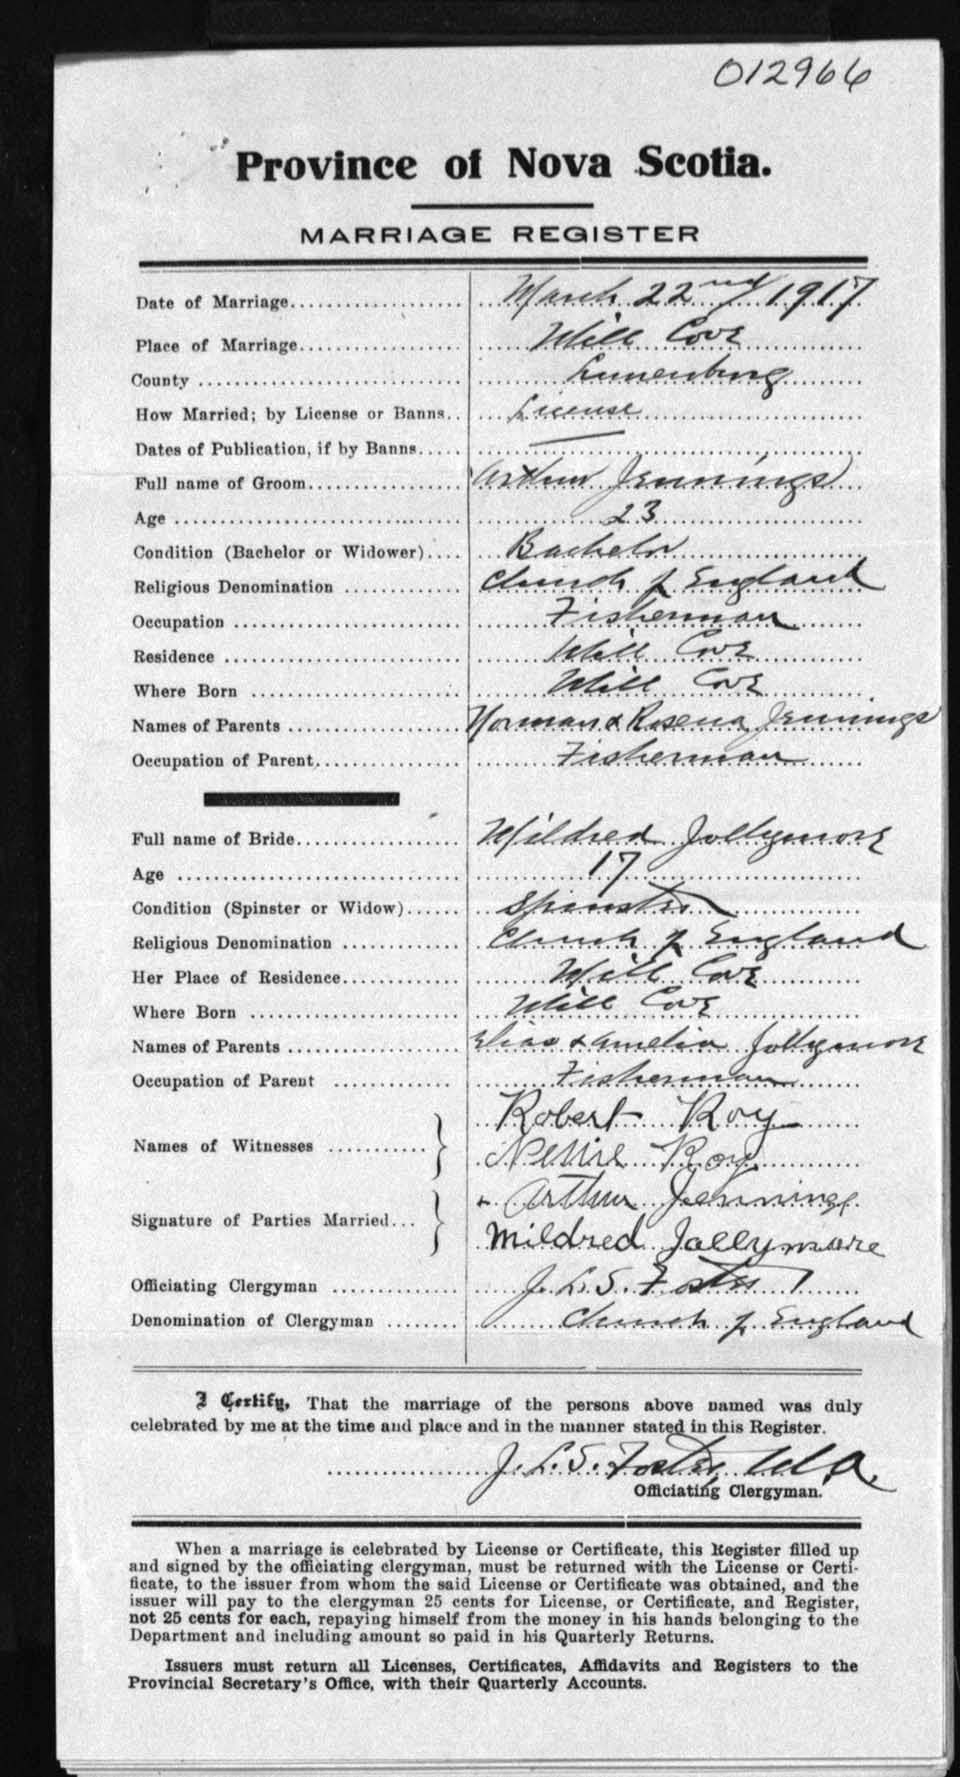 012966
Province of Nova Scotia.
MARRIAGE REGISTER
Date of Marriage March 22nd/1917
Place of Marriage Mill Cove
County Lunenburg
How Married; by License or Banns License
Dates of Publication, if by Banns —
Full name of Groom Arthur Jennings
Age 23
Condition (Bachelor or Widower) Bachelor
Religious Denomination Church of England
Occupation Fisherman
Residence Mill Cove
Where Born Mill Cove
Names of Parents Norman & Rosena Jennings
Occupation of Parent Fisherman
Full name of Bride Mildred Jollymore
Age 17
Condition (Spinster or Widow) Spinster
Religious Denomination Church of England
Her Place of Residence Mill Cove
Where Born Mill Cove
Names of Parents Elias & Amelia Jollymore
Occupation of Parent Fisherman
Robert Roy
Names of Witnesses Nellie Roy
Arthur Jennings
Signature of Parties Married
Mildred Jollymore
Officiating Clergyman J. L. S. Foster
Denomination of Clergyman Church of England
I Certify, That the marriage of the persons above named was duly
celebrated by me at the time and place and in the manner stated in this Register.
J. L. S. Foster M.A.
Officiating Clergyman.
When a marriage is celebrated by License or Certificate, this Register filled up
and signed by the officiating clergyman, must be returned with the License or Certi-
ficate, to the issuer from whom the said License or Certificate was obtained, and the
issuer will pay to the clergyman 25 cents for License, or Certificate, and Register,
not 25 cents for each, repaying himself from the money in his hands belonging to the
Department and including amount so paid in his Quarterly Returns.
Issuers must return all Licenses, Certificates, Affidavits and Registers to the
Provincial Secretary's Office, with their Quarterly Accounts.